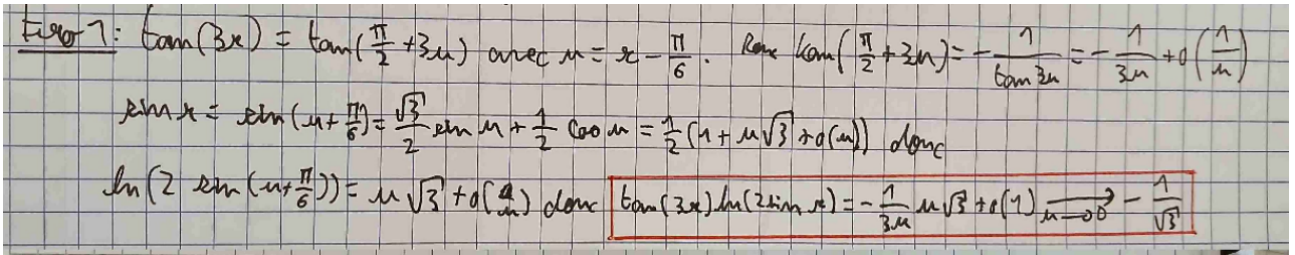 Exo 1: tan(3x) = tan(π/2 + 3u) avec u = x - π/6. Donc tan(π/2 + 3u) = - 1/tan 3u = - 1/3u + o(1/u)
sin x = sin(u + π/6) = √3/2 sin u + 1/2 cos u = 1/2 (1 + u√3 + o(u)) donc
ln(2 sin(u + π/6)) = u√3 + o(u) donc tan(3x) ln(2 sin x) = - 1/3u u√3 + o(1) ⟶ u→0 - 1/√3